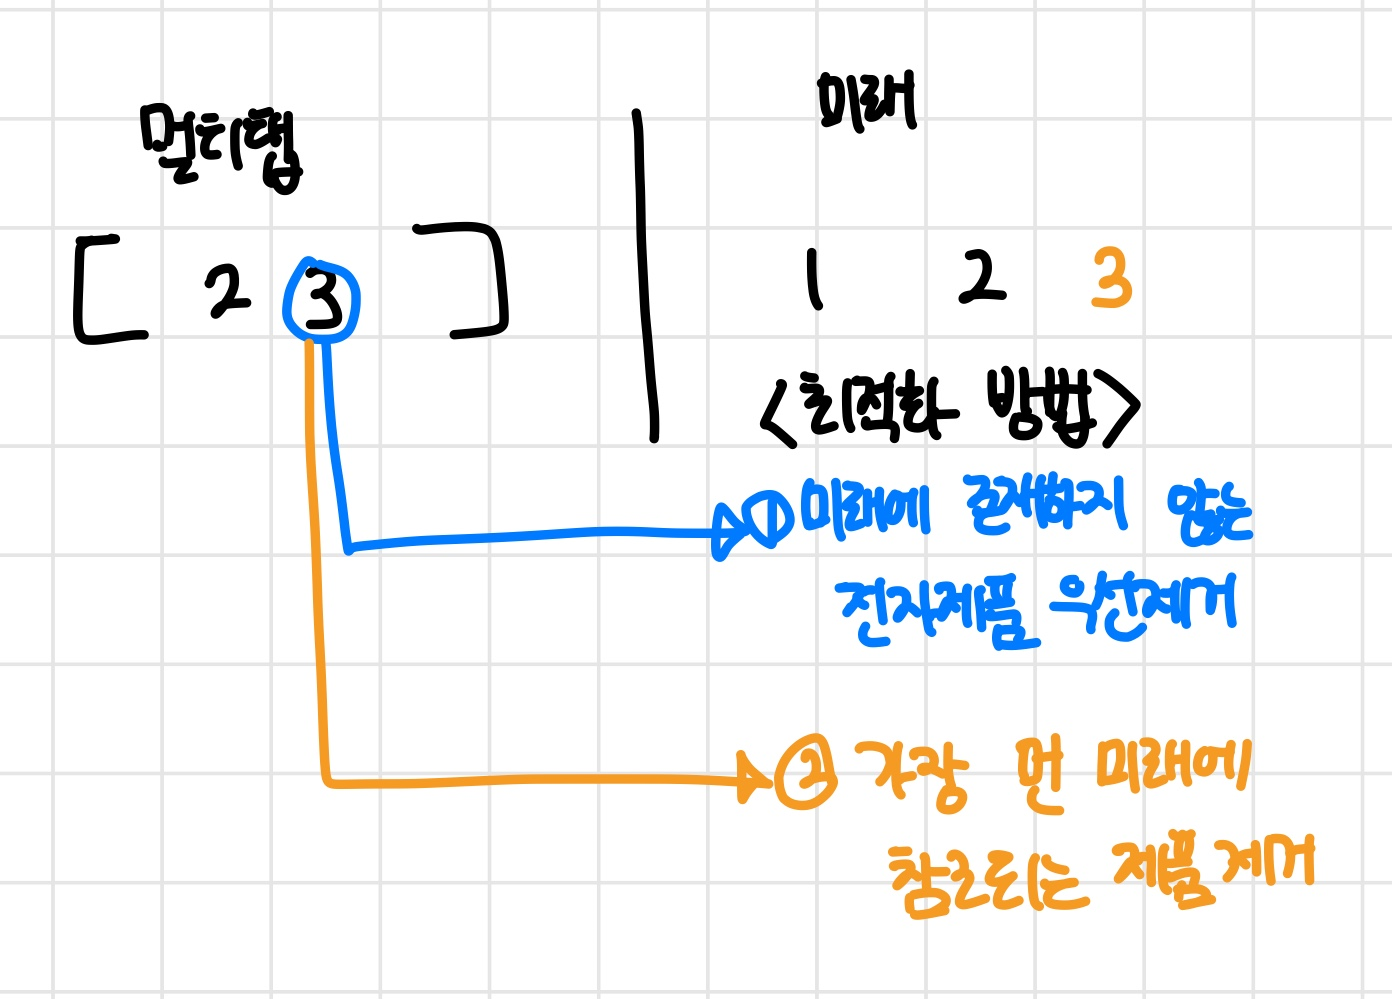 멀티탭
미래
[ 2 3 ]
1 2 3
<최적화 방법>
① 미래에 존재하지 않는
전자제품 우선제거
② 가장 먼 미래에
참조되는 제품 제거